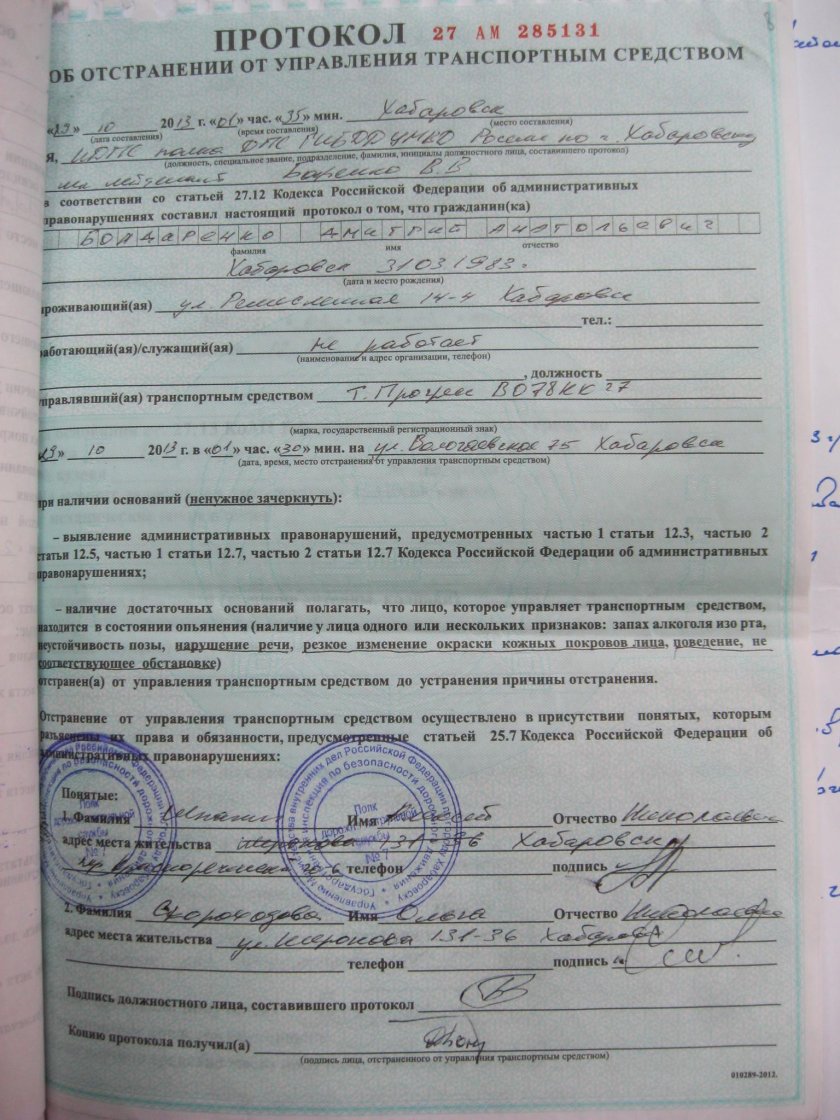 ПРОТОКОЛ 27 АМ 285131
ОБ ОТСТРАНЕНИИ ОТ УПРАВЛЕНИЯ ТРАНСПОРТНЫМ СРЕДСТВОМ
«19» 10 2013 г. «01» час. «35» мин. Хабаровск
(дата составления) (время составления) (место составления)
Я, ИДПС полка ДПС ГИБДД УМВД России по г. Хабаровску
(должность, специальное звание, подразделение, фамилия, инициалы должностного лица, составившего протокол)
мл лейтенант В.В
в соответствии со статьей 27.12 Кодекса Российской Федерации об административных
правонарушениях составил настоящий протокол о том, что гражданин(ка)
БОНДАРЕНКО ДМИТРИЙ АНАТОЛЬЕВИЧ
фамилия имя отчество
Хабаровск 31031983г
(дата и место рождения)
проживающий(ая) ул. Ремесленная 14-4 Хабаровск
тел.:
работающий(ая)/служащий(ая) не работает
(наименование и адрес организации, телефон)
, должность
управлявший(ая) транспортным средством Т. Прогрес В078КК 27
(марка, государственный регистрационный знак)
«19» 10 2013 г. в «01» час. «30» мин. на ул. Волочаевская 75 Хабаровска
(дата, время, место отстранения от управления транспортным средством)
при наличии оснований (ненужное зачеркнуть):
– выявление административных правонарушений, предусмотренных частью 1 статьи 12.3, частью 2
статьи 12.5, частью 1 статьи 12.7, частью 2 статьи 12.7 Кодекса Российской Федерации об административных
правонарушениях;
– наличие достаточных оснований полагать, что лицо, которое управляет транспортным средством,
находится в состоянии опьянения (наличие у лица одного или нескольких признаков: запах алкоголя изо рта,
неустойчивость позы, нарушение речи, резкое изменение окраски кожных покровов лица, поведение, не
соответствующее обстановке)
отстранен(а) от управления транспортным средством до устранения причины отстранения.
Отстранение от управления транспортным средством осуществлено в присутствии понятых, которым
разъяснены их права и обязанности, предусмотренные статьей 25.7 Кодекса Российской Федерации об
административных правонарушениях:
Понятые:
1. Фамилия Имя Алексей Отчество Николаевич
адрес места жительства 131-36 Хабаровск
телефон подпись
2. Фамилия Скороходова Имя Ольга Отчество Николаевна
адрес места жительства ул. 131-36 Хабаровск
телефон подпись
Подпись должностного лица, составившего протокол
Копию протокола получил(а)
(подпись лица, отстраненного от управления транспортным средством)
010289-2012.